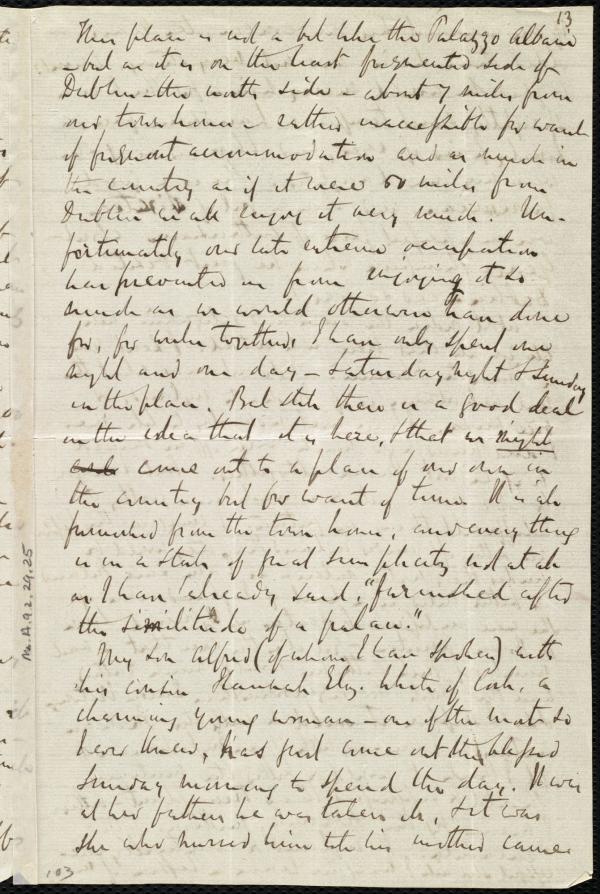 13
This place is not a bit like the Palazzo Albano
- but as it is on the least frequented side of
Dublin - the north side - about 7 miles from
our town house - rather inaccessible for want
of frequent accommodation and as much in
the country as if it were 50 miles from
Dublin we all enjoy it very much. Un-
fortunately our late extreme occupation
has prevented us from enjoying it so
much as we would otherwise have done
for, for weeks together, I have only spent one
night and one day - Saturday night & Sunday
in the place. But still there is a good deal
in the idea that it is here, & that we might
come out to a place of our own in
the country but for want of time. It is all
furnished from the town house, and every thing
is in a state of great simplicity not at all
as I have already said, "furnished after
the similitude of a palace."
My son Alfred (of whom I have spoken) with
his cousin Hannah Eliz. White of Cork, a
charming young woman - one of the most so
I ever knew, has just come out this blessed
Sunday morning to spend the day. It was
at her father's he was taken ill, & it was
she who nursed him till his mother came
Ms.A.9.2.29.25
103